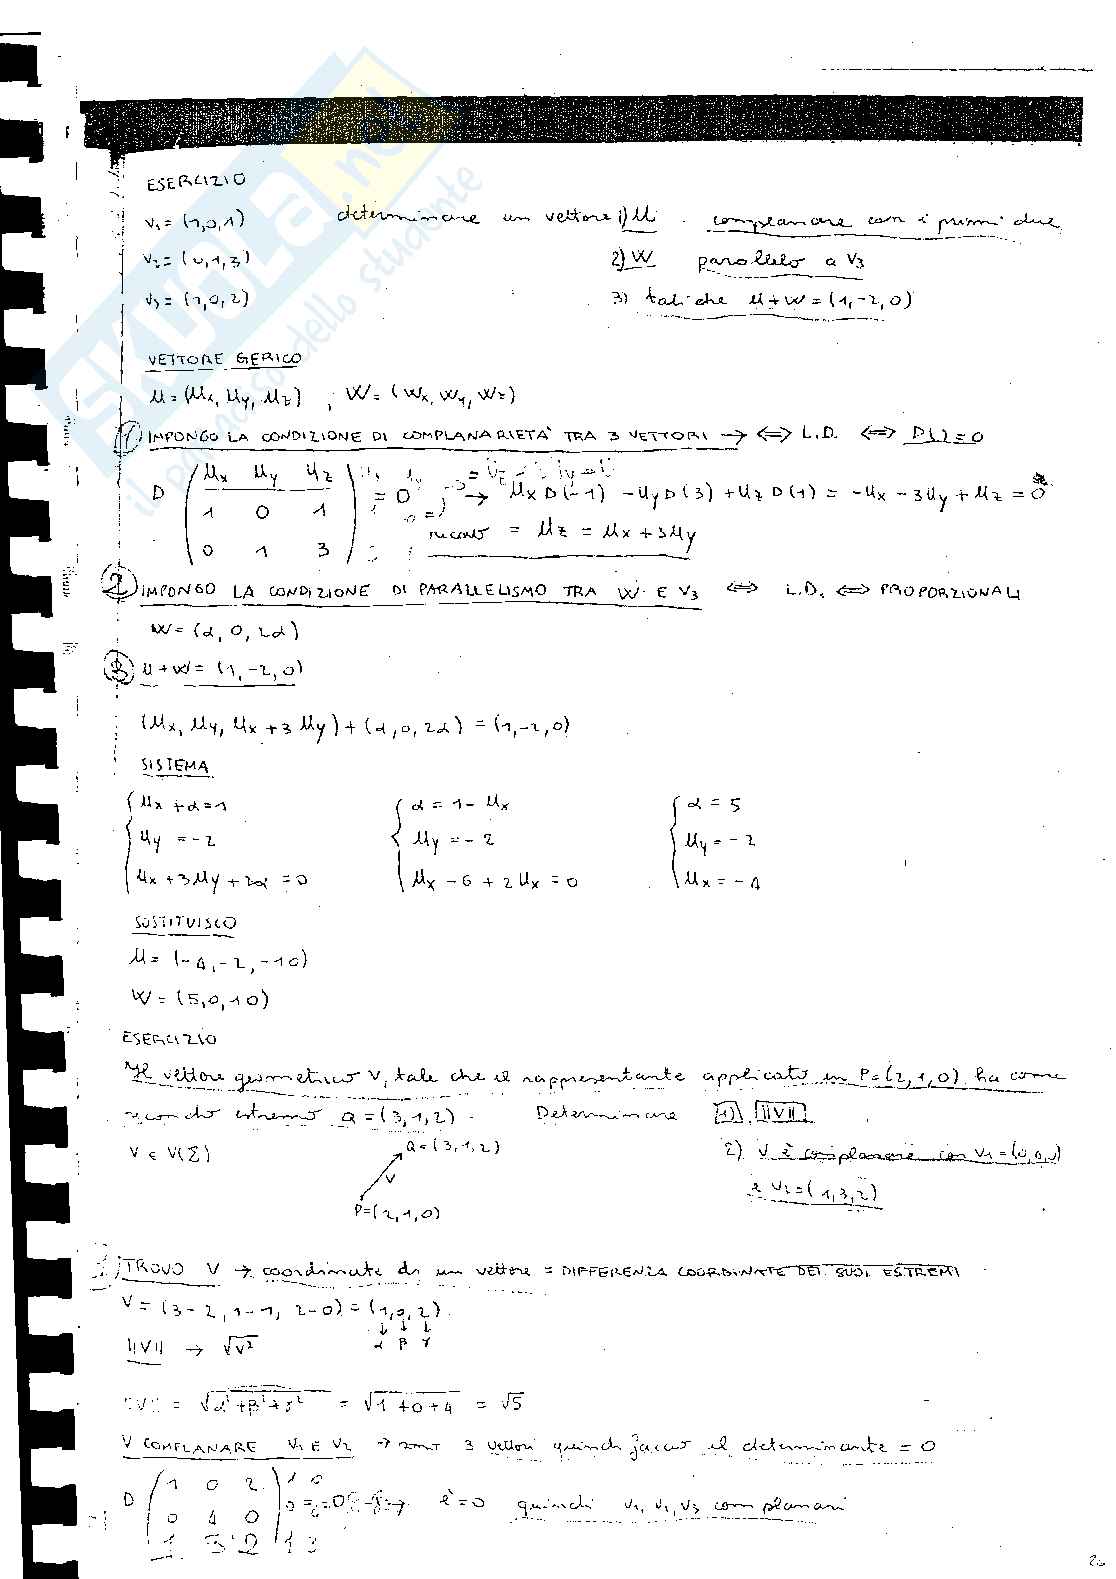 ESERCIZIO
V₁ = (1,0,1) determinare un vettore 1) u complanare con i primi due
V₂ = (0,1,3) 2) W parallelo a V₃
V₃ = (1,0,2) 3) tali che u + w = (1,-2,0)
VETTORE GERICO
u = (ux, uy, uz) ; W = (wx, wy, wz)
1) IMPONGO LA CONDIZIONE DI COMPLANARIETA' TRA 3 VETTORI → ⇔ L.D. ⇔ D( ) = 0
D ( ux uy uz ) = 0 → ux D(-1) - uy D(3) + uz D(1) = -ux - 3uy + uz = 0
1 0 1
ricavo = uz = ux + 3uy
0 1 3
2) IMPONGO LA CONDIZIONE DI PARALLELISMO TRA W E V₃ ⇔ L.D. ⇔ PROPORZIONALI
W = (α, 0, 2α)
3) u + w = (1,-2,0)
(ux, uy, ux + 3uy) + (α, 0, 2α) = (1,-2,0)
SISTEMA
{ ux + α = 1 { α = 1 - ux { α = 5
uy = -2 uy = -2 uy = -2
ux + 3uy + 2α = 0 ux - 6 + 2 ux = 0 ux = -4
SOSTITUISCO
u = (-4, -2, -10)
W = (5,0,10)
ESERCIZIO
Il vettore geometrico V, tale che il rappresentante applicato in P=(2,1,0) ha come
secondo estremo Q = (3,1,2). Determinare 1) ||V||
V ∈ V(Σ) Q = (3,1,2) 2) V è complanare con V₁ = (0,0,
V
e V₂ = (1,3,2)
P=(2,1,0)
1) TROVO V → coordinate di un vettore = DIFFERENZA COORDINATE DEI SUOI ESTREMI
V = (3-2, 1-1, 2-0) = (1,0,2).
↓ ↓ ↓
||V|| → √V² α β γ
||V|| = √α²+β²+γ² = √1+0+4 = √5
V COMPLANARE V₁ E V₂ → sono 3 vettori quindi faccio il determinante = 0
D ( 1 0 2 ) 1 0
0 4 0 è = 0 quindi V₁, V₂, V₃ complanari
1 3 2 1 3